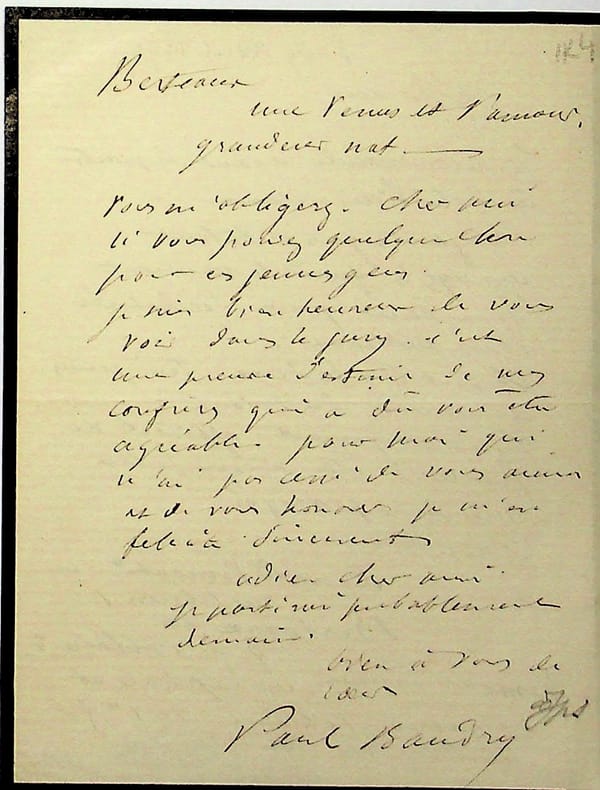 184
Berteaux
une Venus et l'amour,
grandeur nat.
vous m'obligerez. cher ami
si vous pouvez quelque chose
pour ces jeunes gens.
je suis bien heureux de vous
voir dans le jury. c'est
une preuve d'estime de nos
confrères qui a dû vous être
agréable. pour moi qui
n'ai pas cessé de vous aimer
et de vous honorer je m'en
felicite sincèrement
adieu cher ami.
je partirai probablement
demain.
bien à vous de
cœur
Paul Baudry